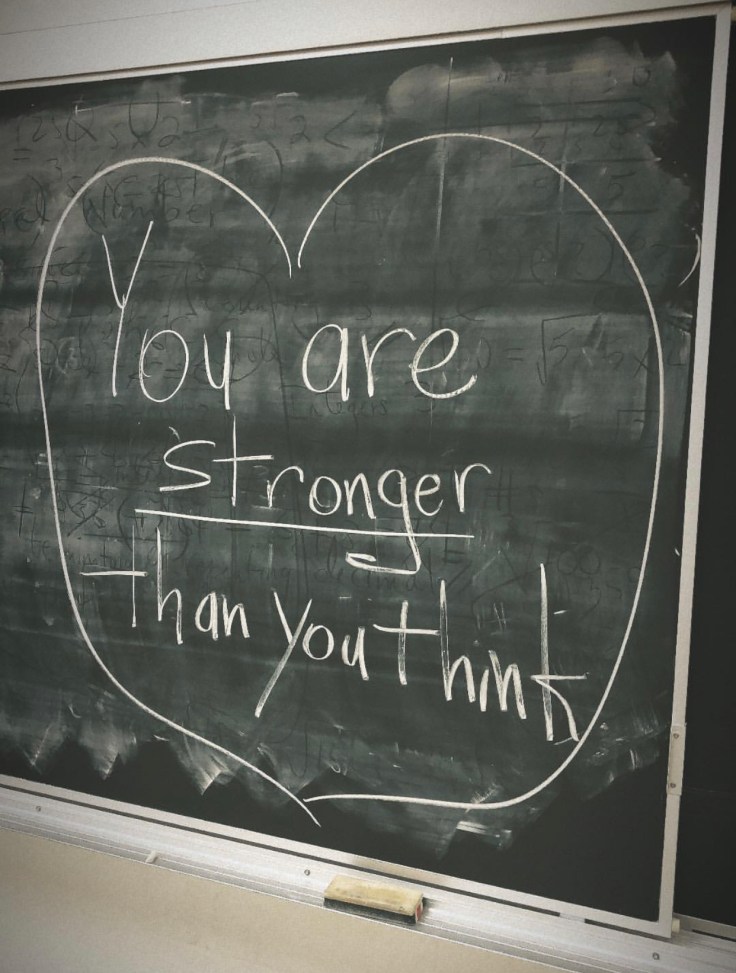 You are
stronger
than you think